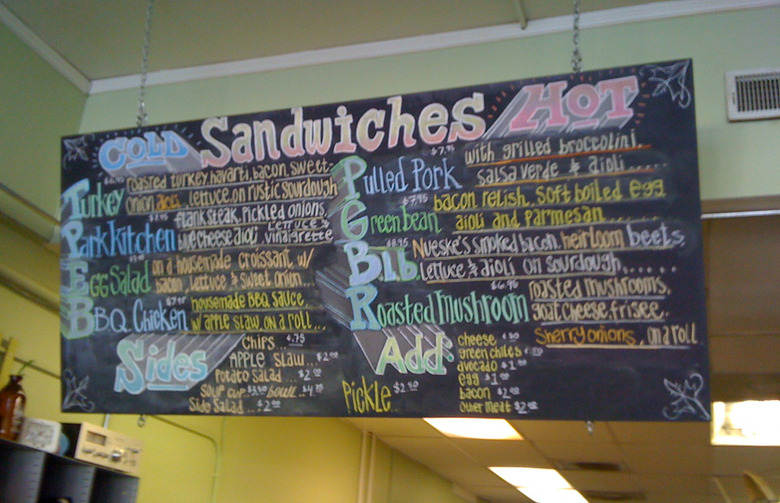 COLD Sandwiches HOT
Turkey roasted turkey, havarti, bacon, sweet
onion aioli, lettuce, on rustic sourdough
Park Kitchen $7.95 flank steak, pickled onions,
blue cheese aioli, lettuce & vinaigrette
Egg Salad on a housemade croissant w/
bacon, lettuce & sweet onion...
BBQ. Chicken housemade BBQ sauce,
w/ apple slaw, on a roll...
Pulled Pork $7.95 with grilled broccolini,
salsa verde & aioli.....
Green bean $7.95 bacon relish, soft boiled egg
aioli and parmesan.....
Blb $8.95 Nueske's smoked bacon, heirloom beets,
lettuce & aioli on sourdough......
Roasted Mushroom $6.95 roasted mushrooms,
goat cheese, frisee,
sherry onions, on a roll
Sides
Chips $.75
Apple Slaw... $2.00
Potato Salad... $2.00
Soup cup $3.50 bowl $4.75
Side Salad... $2.00
Pickle $2.50
Add
cheese .50
green chiles
avocado $1.00
egg $1.00
bacon $2.00
other meat $2.00